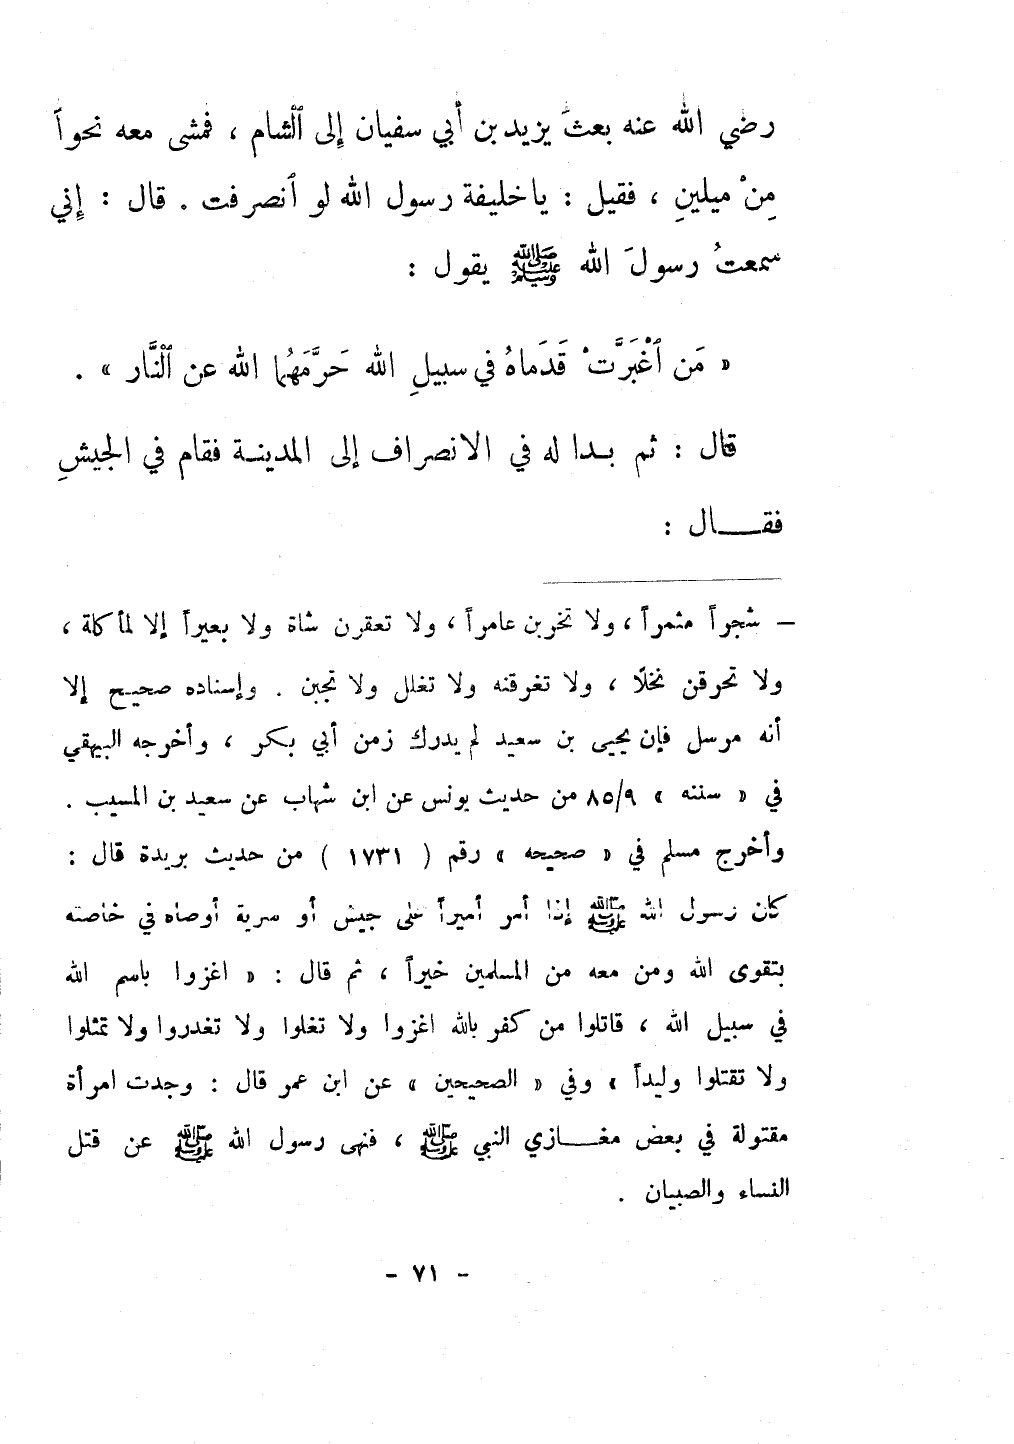 رضي الله عنه بعثَ يزيد بن أبي سفيان إلى ٱلشام ، فمشى معه نحواً
مِنْ ميلينِ ، فقيل : يا خليفة رسول الله لو ٱنصرفت . قال : إني
سمعتُ رسولَ الله ﷺ يقول :
« مَن ٱغْبَرَّتْ قَدَماهُ في سبيلِ الله حَرَّمَهُما الله عن ٱلنَّار » .
قال : ثم بـدا له في الانصراف إلى المدينـة فقام في الجيشِ
فقـــال :
– شجراً مثمراً ، ولا تخربن عامراً ، ولا تعقرن شاة ولا بعيراً إلا لمأكلة ،
ولا تحرقن نخلًا ، ولا تغرقنه ولا تغلل ولا تجبن . وإسناده صحيح إلا
أنه مرسل فإن يحيى بن سعيد لم يدرك زمن أبي بكر ، وأخرجه البيهقي
في « سننه » ٨٥/٩ من حديث يونس عن ابن شهاب عن سعيد بن المسيب .
وأخرج مسلم في « صحيحه » رقم ( ١٧٣١ ) من حديث بريدة قال :
كان رسول الله ﷺ إذا أمر أميراً على جيش أو سرية أوصاه في خاصته
بتقوى الله ومن معه من المسلمين خيراً ، ثم قال : « اغزوا باسم الله
في سبيل الله ، قاتلوا من كفر بالله اغزوا ولا تغلوا ولا تغدروا ولا تمثلوا
ولا تقتلوا وليداً » وفي « الصحيحين » عن ابن عمر قال : وجدت امرأة
مقتولة في بعض مغـــازي النبي ﷺ ، فنهى رسول الله ﷺ عن قتل
النساء والصبيان .
- ٧١ -